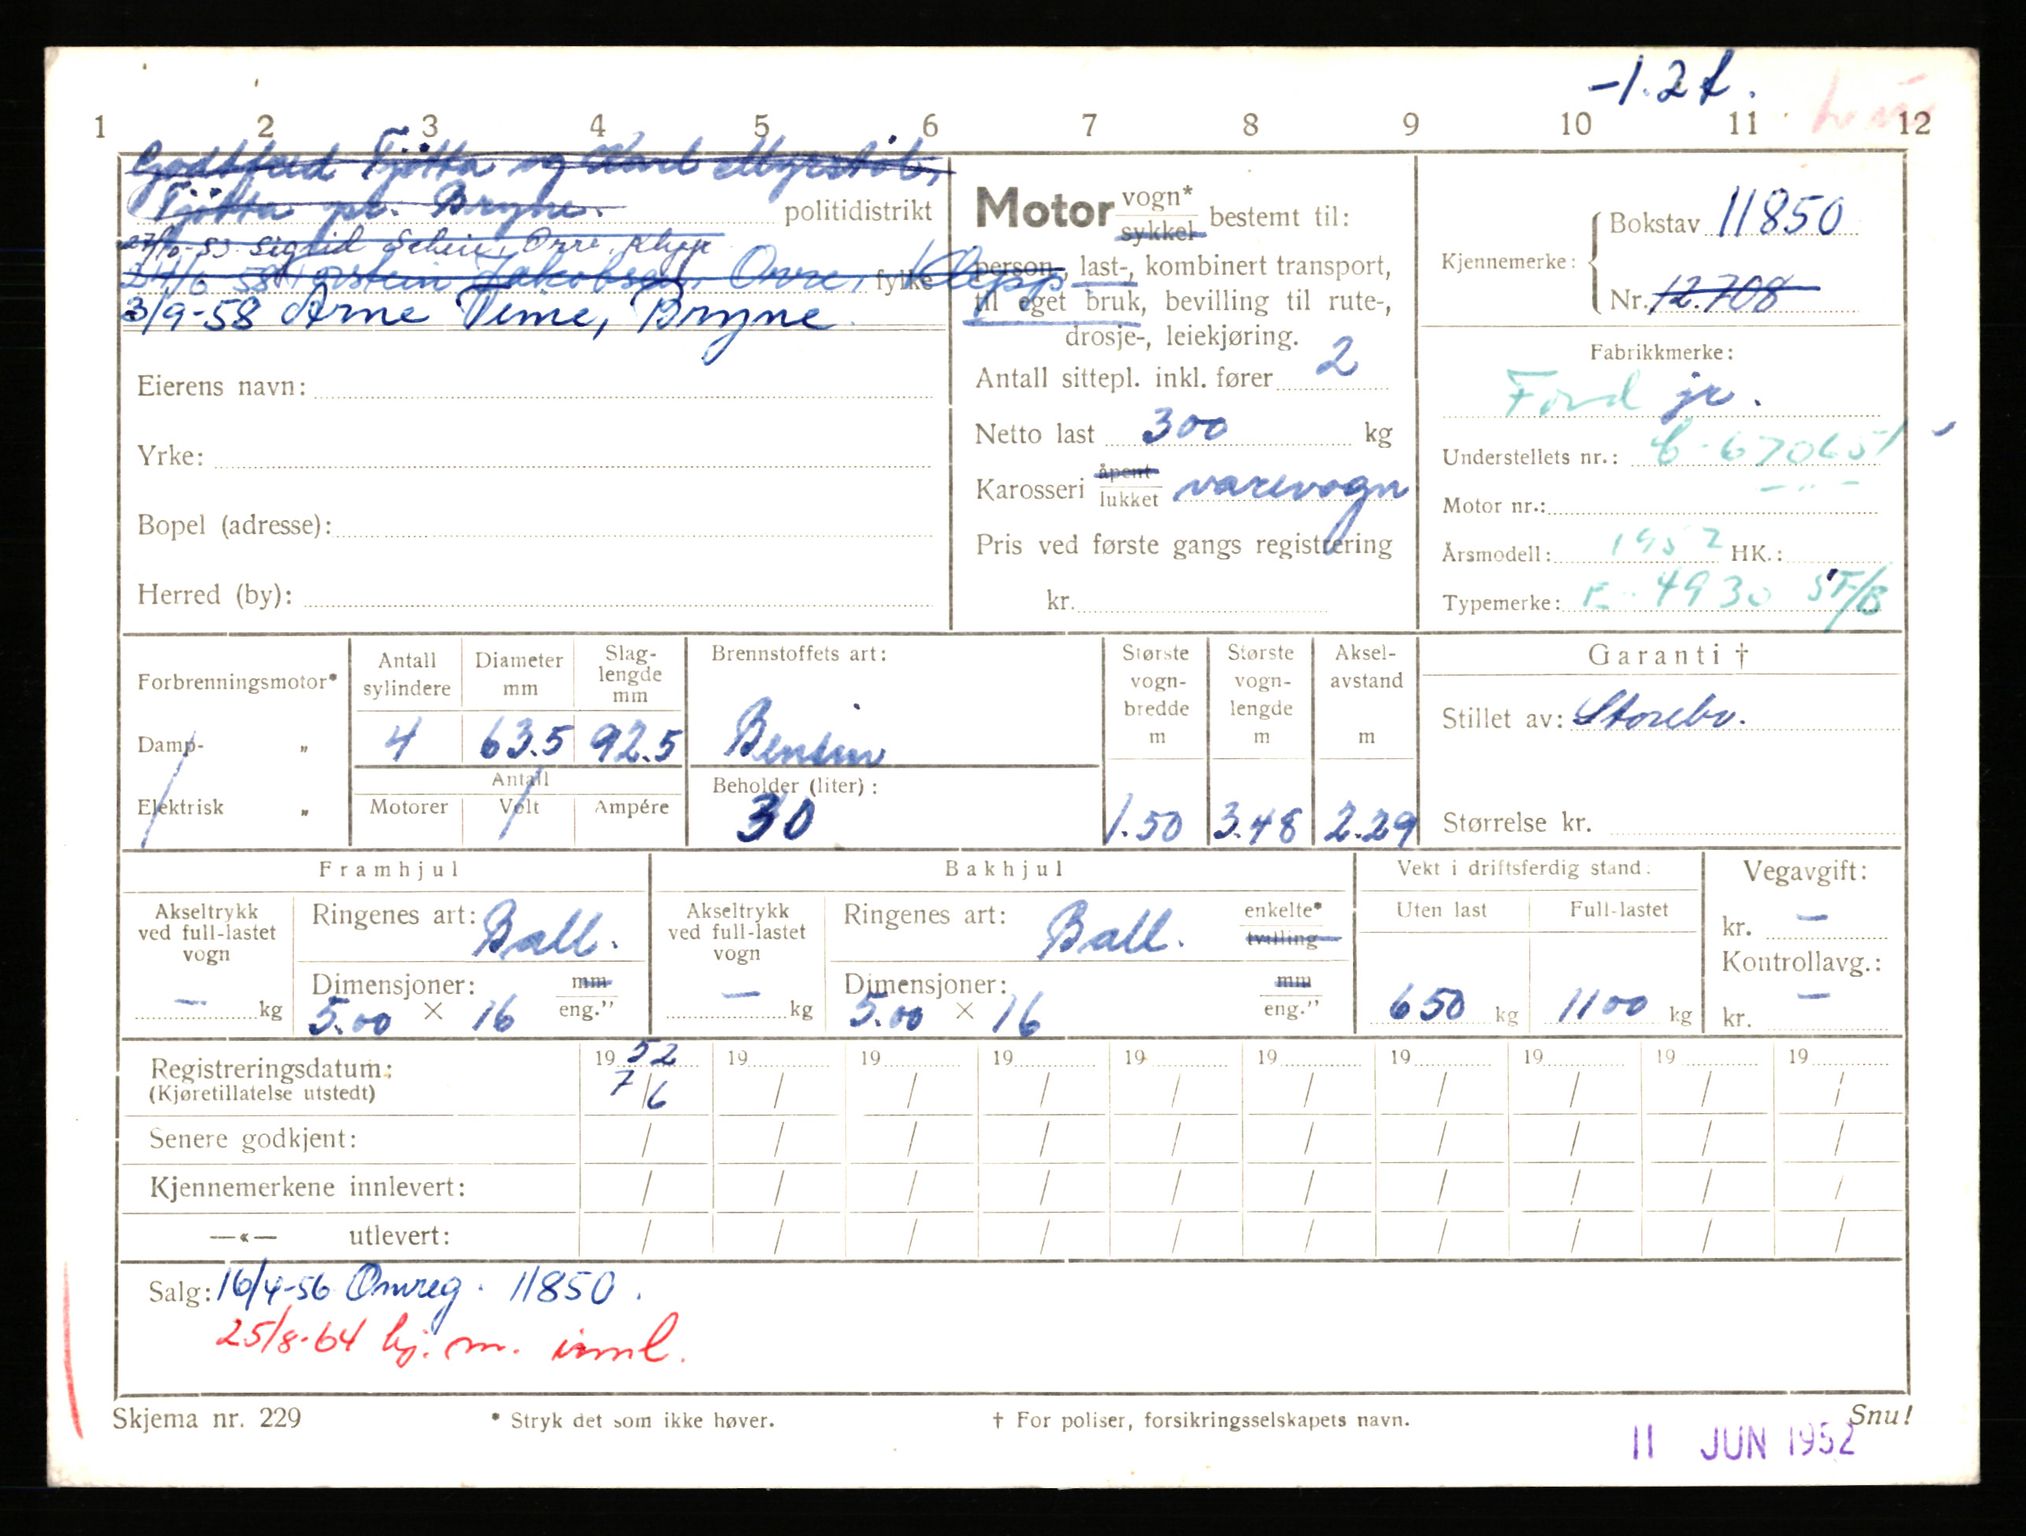 -1.2t.
1 2 3 4 5 6 7 8 9 10 11 12
Godtfred Tjøtta og Karl Myrstøl,
Tjøtta pr. Bryne. politidistrikt
27/10-53 Sigrid Scheie, Orre, Klepp
24/6 58 Torstein Jakobsen, Orre, Klepp fylke
3/9-58 Arne Vime, Bryne.
Eierens navn:
Yrke:
Bopel (adresse):
Herred (by):
Motor vogn* sykkel bestemt til:
person-, last-, kombinert transport,
til eget bruk, bevilling til rute-,
drosje-, leiekjøring.
Antall sittepl. inkl. fører 2
Netto last 300 kg
Karosseri åpent lukket varevogn
Pris ved første gangs registrering
kr.
Kjennemerke: Bokstav 11850
Nr. 12.708
Fabrikkmerke:
Ford jr.
Understellets nr.: C-670651
Motor nr.:
Årsmodell: 1952 HK.:
Typemerke: E-4930 ST/B
Forbrenningsmotor*
Damp- "
Elektrisk "
Antall sylindere 4
Diameter mm 63.5
Slag-lengde mm 92.5
Antall
Motorer Volt Ampére
Brennstoffets art:
Bensin
Beholder (liter):
30
Største vogn-bredde m 1.50
Største vogn-lengde m 3.48
Aksel-avstand m 2.29
Garanti †
Stillet av: Storebr.
Størrelse kr.
Framhjul
Akseltrykk ved full-lastet vogn — kg
Ringenes art: Ball.
Dimensjoner: mm
5.00 × 16 eng."
Bakhjul
Akseltrykk ved full-lastet vogn — kg
Ringenes art: Ball. enkelte* tvilling
Dimensjoner: mm
5.00 × 16 eng."
Vekt i driftsferdig stand:
Uten last Full-lastet
650 kg 1100 kg
Vegavgift:
kr. —
Kontrollavg.:
kr. —
Registreringsdatum: 19 52 19 19 19 19 19 19 19 19 19
(Kjøretillatelse utstedt) 7/6 / / / / / / / / /
Senere godkjent: / / / / / / / / / /
Kjennemerkene innlevert: / / / / / / / / / /
—«— utlevert: / / / / / / / / / /
Salg: 16/4-56 Omreg. 11850.
25/8-64 kj. m. innl.
Skjema nr. 229 * Stryk det som ikke høver. † For poliser, forsikringsselskapets navn. Snu!
11 JUN 1952